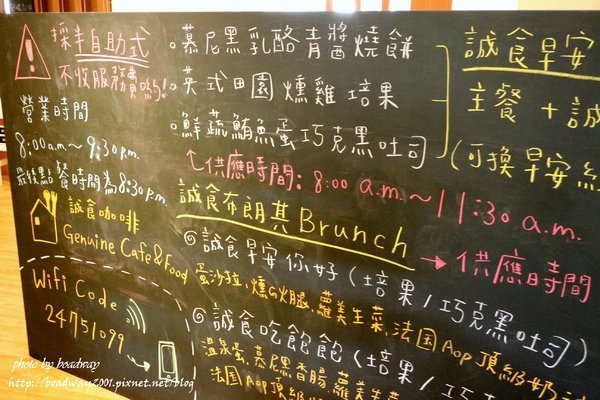 採半自助式
不收服務費喲!
營業時間
8:00a.m.～9:30p.m.
最後點餐時間為8:30p.m.
誠食咖啡
Genuine Cafe&Food
Wifi Code
24751099
慕尼黑乳酪青醬燒餅
英式田園燻雞焙果
鮮蔬鮪魚蛋巧克黑吐司
供應時間: 8:00 a.m.～11:30 a.m.
誠食早安
主餐 + 誠
(可換早安
誠食布朗其Brunch
→ 供應時間
誠食早安你好 (焙果/巧克黑吐司)
蛋沙拉、燻の火腿、蘿美生菜、法国AOP頂級奶
誠食吃飽飽 (焙果/巧克
温泉蛋、慕尼黑香腸、蘿美生菜
法国AOP頂級
photo by boadway
http://boadway2001.pixnet.net/blog